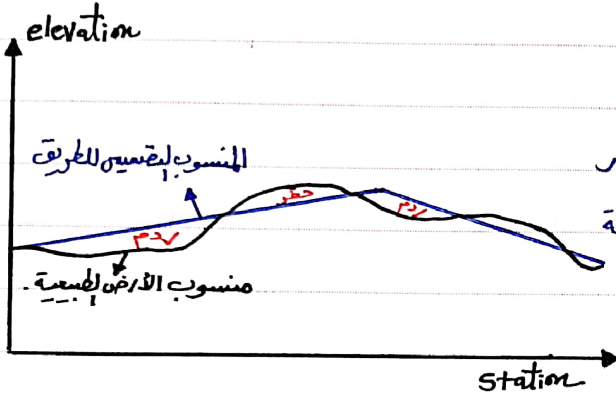 elevation
المنسوب التصميمي للطريق
حفر
ردم
ردم
منسوب الأرض الطبيعية.
Station